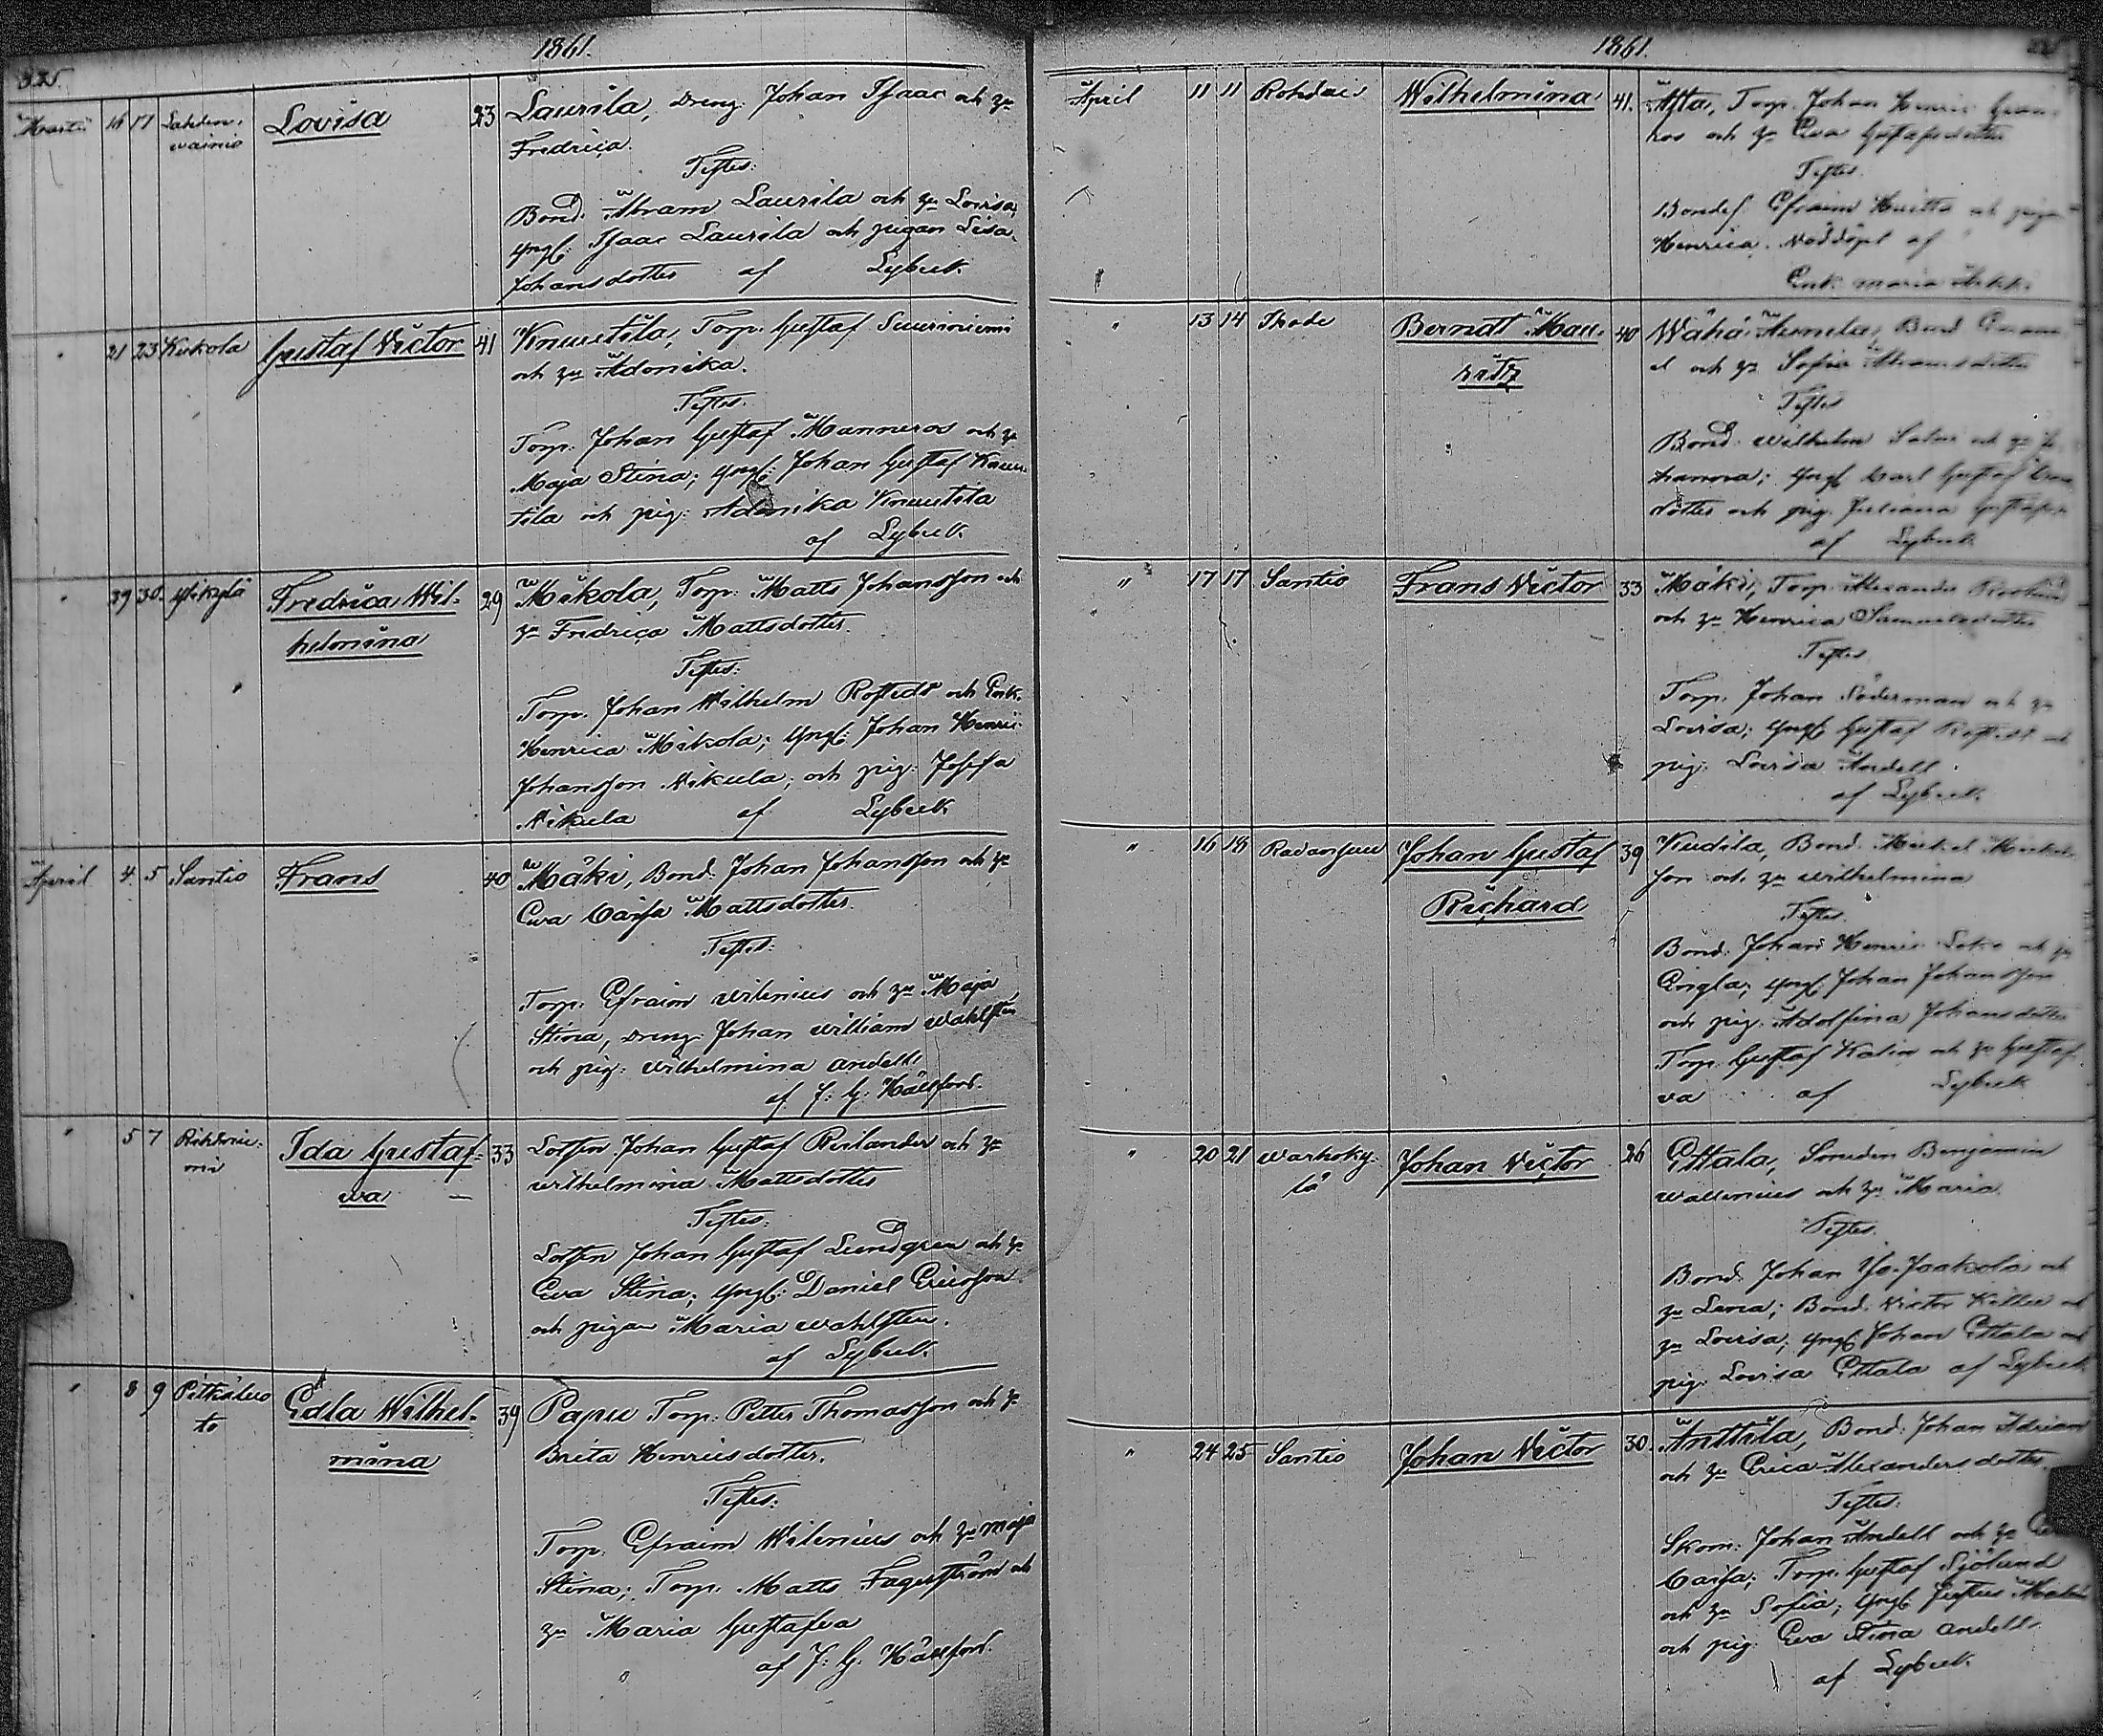 1861.
335.
Martii 16 17 Lahden- Lovisa 23 Laurila, Dreng. Johan Isaac och hu
wainio Fredrica.
Testes:
Bond. Abram Laurila och hu Lovisa,
yngl: Isaac Laurila och pigan Lisa
Johansdotter af Lybeck.
" 21 23 Kukola Gustaf Victor 41 Knuutila, Torp. Gustaf Suuriniemi
och hu Adonika.
Testes.
Torp. Johan Gustaf Manneros och hu
Maja Stina; yngl: Johan Gustaf Knuu-
tila och pig: Adonika Knuutila
af Lybeck.
" 29 30 Yikylä Fredrica Wil- 29 Mikola, Torp: Matts Johansson och
helmina hu Fredrica Mattsdotter.
Testes:
Torp. Johan Wilhelm Rostedt och Enk.
Henrica Mikola; yngl: Johan Henric
Johansson Nikula; och pig: Josefa
Nikula af Lybeck
April 4 5 Santio Frans 40 Mäki, Bond. Johan Johansson och hu
Ewa Caisa Mattsdotter.
Testes:
Torp: Efraim Wilenius och hu Maja
Stina, Dreng Johan William Wahlsten
och pig: Wilhelmina Andell.
af J: G: Hällfors.
" 5 7 Rihtnie- Ida Gustaf- 33 Lotsen Johan Gustaf Reilander och hu
mi wa Wilhelmina Mattsdotter
Testes:
Lotsen Johan Gustaf Lundgren och hu
Ewa Stina; yngl: Daniel Ericsson
och pigan Maria Wahlsten.
af Lybeck.
" 8 9 Pitkäluo Edla Wilhel- 39 Papu Torp: Petter Thomasson och hu
to mina Brita Henricsdotter.
Testes:
Torp. Efraim Wilenius och hu Maja
Stina; Torp. Matts Fagerström och
hu Maria Gustafva
af J: G. Hällfors.
1861.
April 11 11 Rohdais Wilhelmina 41. Torp. Johan Henric Gran-
ros och hu Ewa Gustafsdotter
Testes.
Bondes. Efraim och pigan
Henrica. Nöddöpt af
Enk. Maria
" 13 14 Berndt Mau- 40 Wähä Bond
ritz och hu Sofia Abramsdotter
Testes
Bond. Wilhelm och hu Jo-
hanna; yngl Carl Gustaf
och pig. Juliana
af Lybeck
" 17 17 Santio Frans Victor 33 Mäki, Torp. Alexander
och hu Henrica Samuelsdotter
Testes
Torp. Johan Söderman och hu
Lovisa; yngl Gustaf Rostedt och
pig: Lovisa Andell.
af Lybeck.
" 16 18 Johan Gustaf 39 Kudila, Bond. Mickel Mickels-
Richard son och hu Wilhelmina
Testes.
Bond. Johan Henric och hu
Engla; yngl. Johan Johansson
och pig. Adolfina Johansdotter
Torp. Gustaf Kalin och hu Gustaf-
va af Lybeck
" 20 21 Warhoky- Johan Victor 26 Ettala, Smeden Benjamin
lä Wallenius och hu Maria
Testes.
Bond. Johan Yli-Jaakola och
hu Lena; Bond. Victor och
hu Lovisa; yngl Johan Ettala och
pig. Lovisa Ettala af Lybeck
" 24 25 Santio Johan Victor 30. Anttila, Bond. Johan Adrian
och hu Erica Alexandersdotter
Testes:
Skom: Johan Andell och hu
Caisa; Torp. Gustaf Sjölund
och hu Sofia; yngl Justus
och pig. Ewa Stina Andell.
af Lybeck.